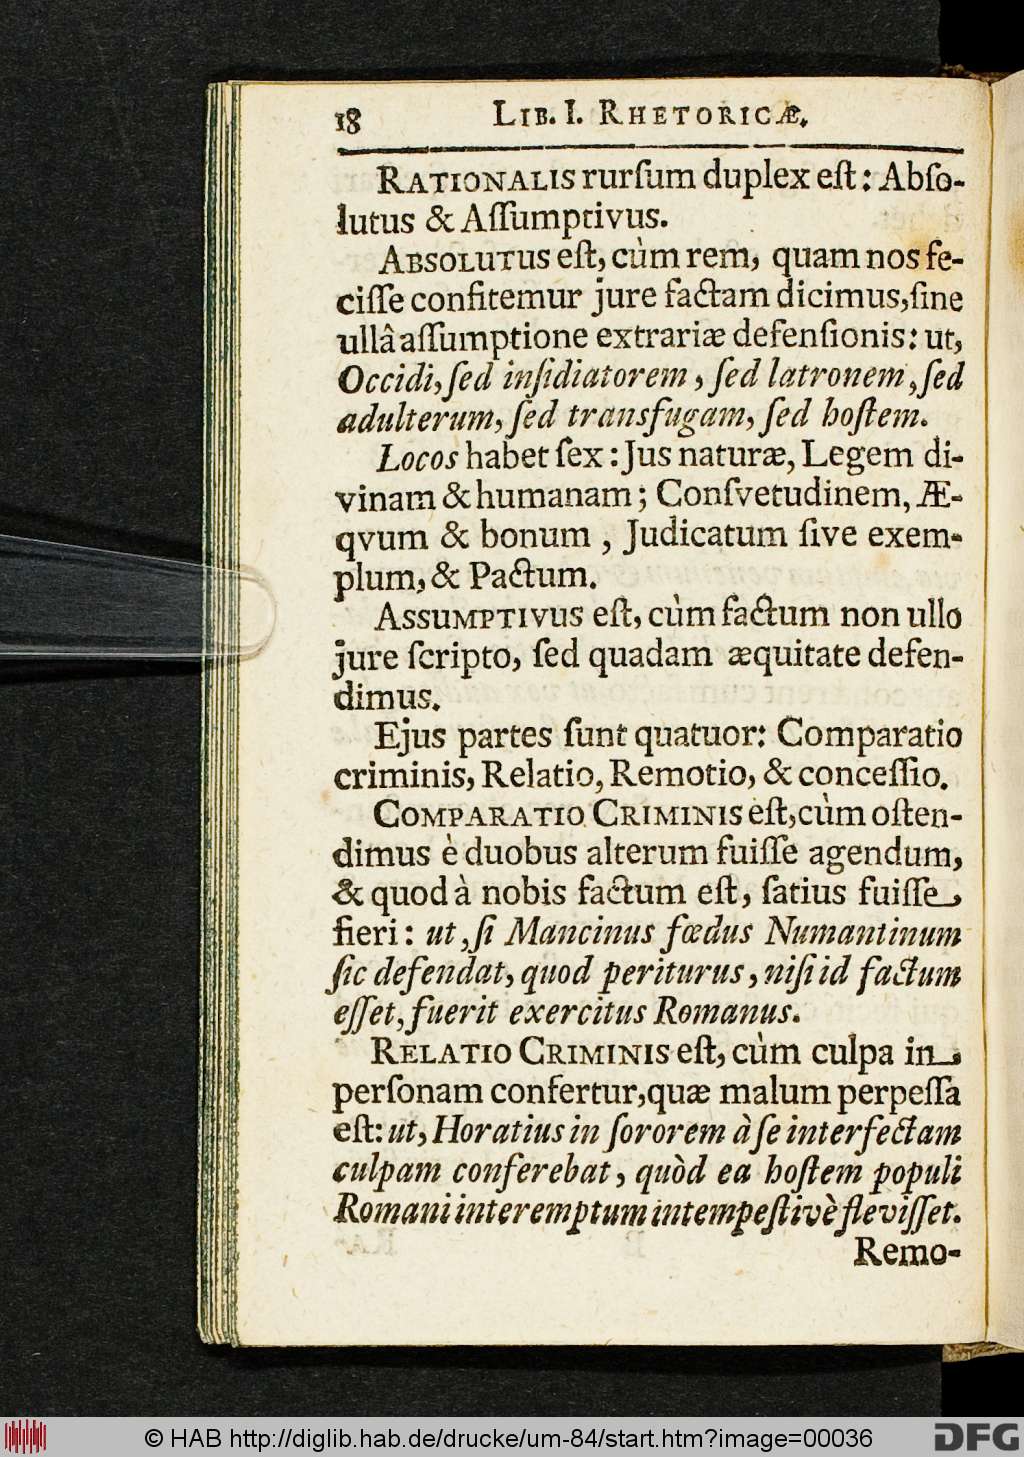 18 LIB. I. RHETORICÆ.
RATIONALIS rurſum duplex eſt: Abſo-
lutus & Aſſumptivus.
ABSOLUTUS eſt, cùm rem, quam nos fe-
ciſſe confitemur jure factam dicimus, ſine
ullâ aſſumptione extrariæ defenſionis: ut,
Occidi, ſed inſidiatorem, ſed latronem, ſed
adulterum, ſed transfugam, ſed hoſtem.
Locos habet ſex: Jus naturæ, Legem di-
vinam & humanam; Conſvetudinem, Æ-
qvum & bonum, Judicatum ſive exem-
plum, & Pactum.
ASSUMPTIVUS eſt, cùm factum non ullo
jure ſcripto, ſed quadam æquitate defen-
dimus.
Ejus partes ſunt quatuor: Comparatio
criminis, Relatio, Remotio, & conceſſio.
COMPARATIO CRIMINIS eſt, cùm oſten-
dimus è duobus alterum fuiſſe agendum,
& quod à nobis factum eſt, ſatius fuiſſe
fieri: ut, ſi Mancinus fœdus Numantinum
ſic defendat, quod periturus, niſi id factum
eſſet, fuerit exercitus Romanus.
RELATIO CRIMINIS eſt, cùm culpa in
perſonam confertur, quæ malum perpeſſa
eſt: ut, Horatius in ſororem à ſe interfectam
culpam conferebat, quòd ea hoſtem populi
Romani interemptum intempeſtivè fleviſſet.
Remo-
© HAB http://diglib.hab.de/drucke/um-84/start.htm?image=00036 DFG